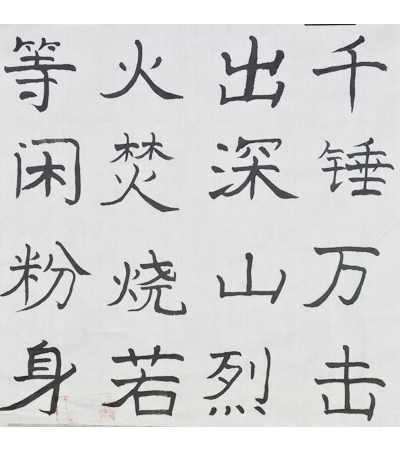 千锤万击
出深山烈
火焚烧若
等闲粉身